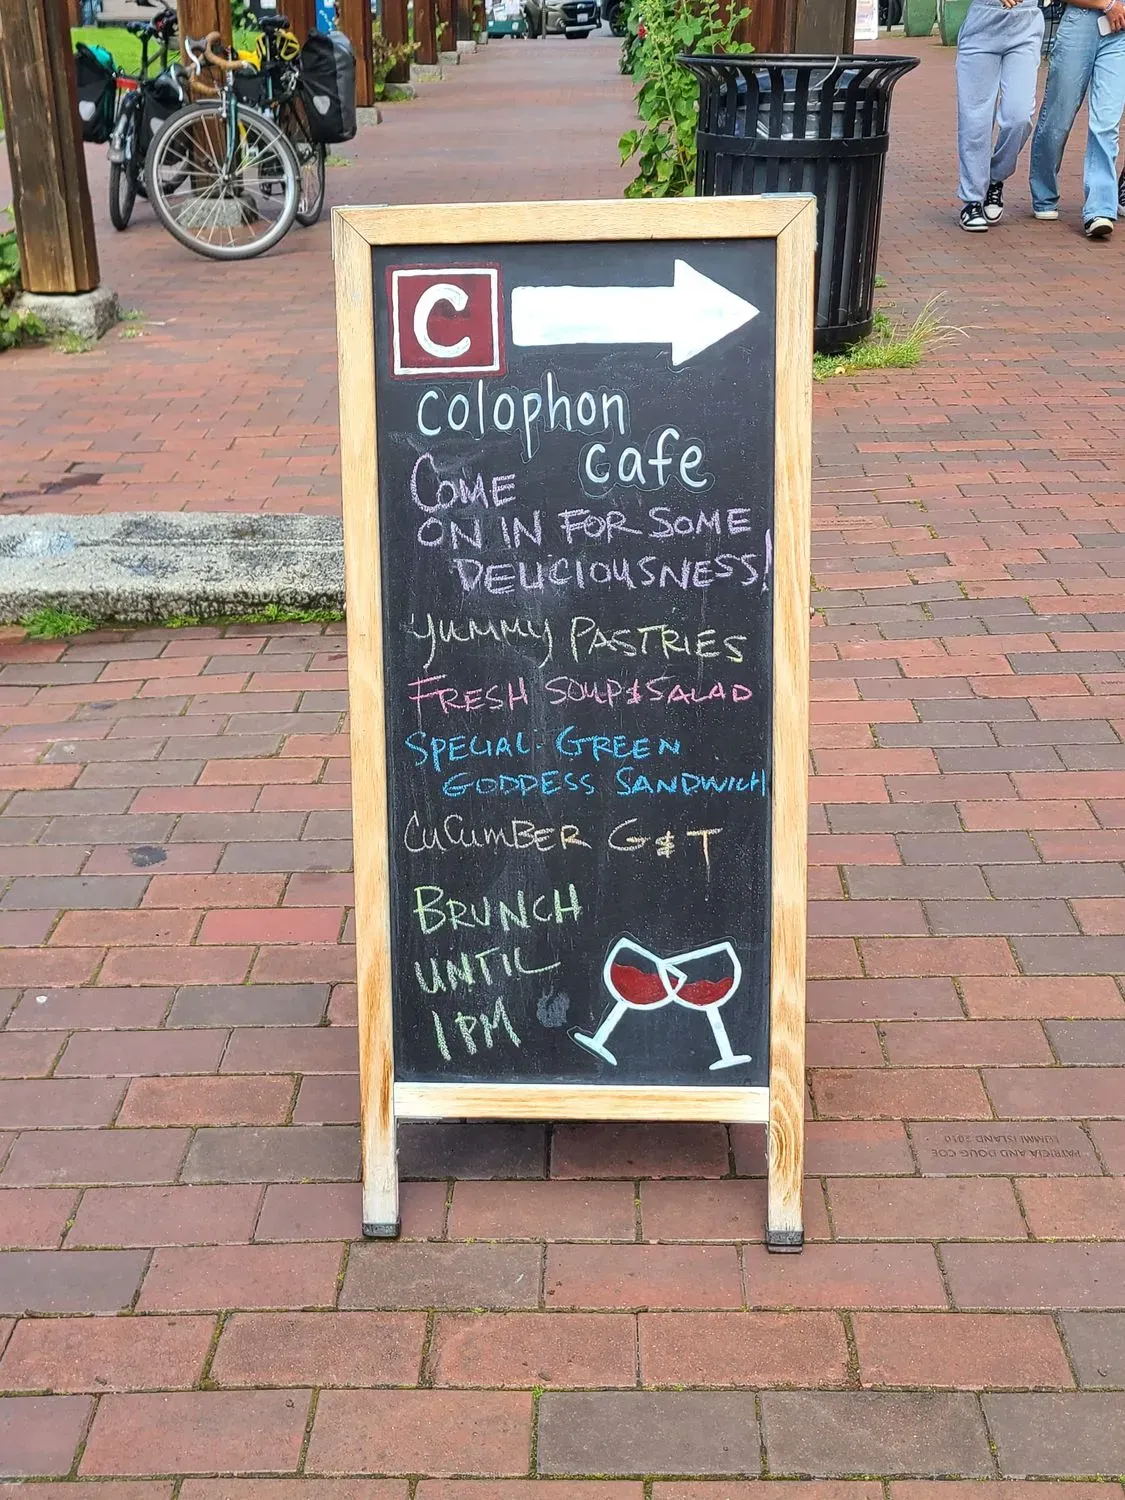 C
colophon
cafe
COME
ON IN FOR SOME
DELICIOUSNESS!
YUMMY PASTRIES
FRESH SOUP & SALAD
SPECIAL. GREEN
GODDESS SANDWICH
CUCUMBER G & T
BRUNCH
UNTIL
1 PM
PATRICIA AND DOUG COE
LUMMI ISLAND 2010